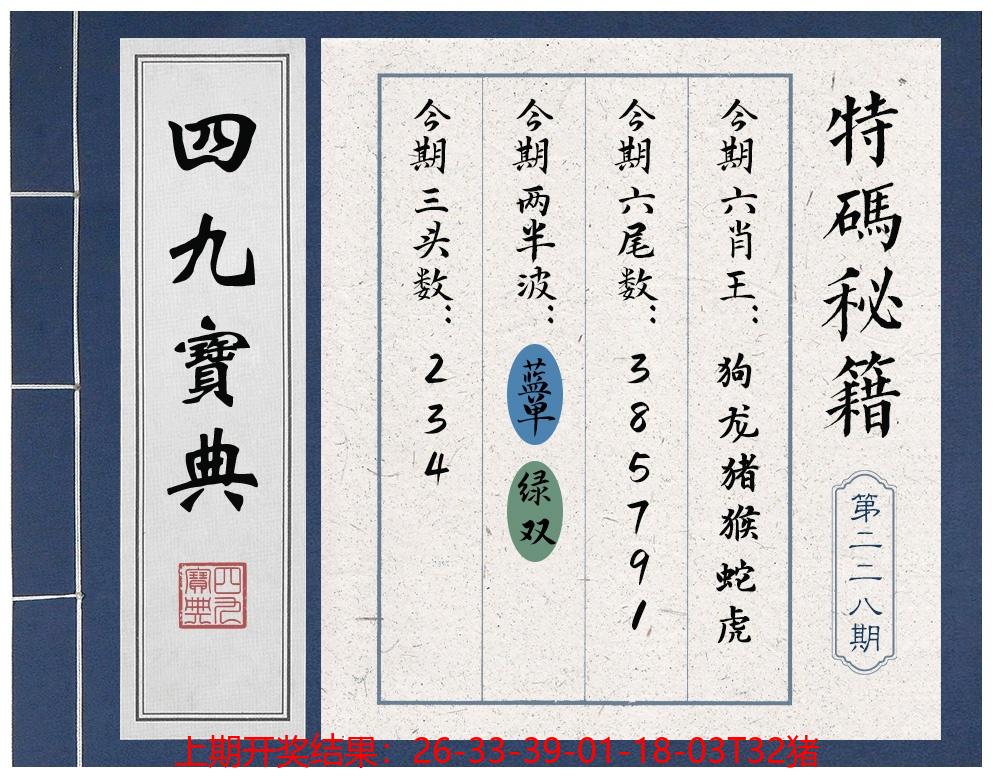 特碼秘籍
第二二八期
今期六肖王：狗龙猪猴蛇虎
今期六尾数：385791
今期两半波：蓝单 绿双
今期三头数：234
四九寶典
四九寶典
上期开奖结果：26-33-39-01-18-03T32猪